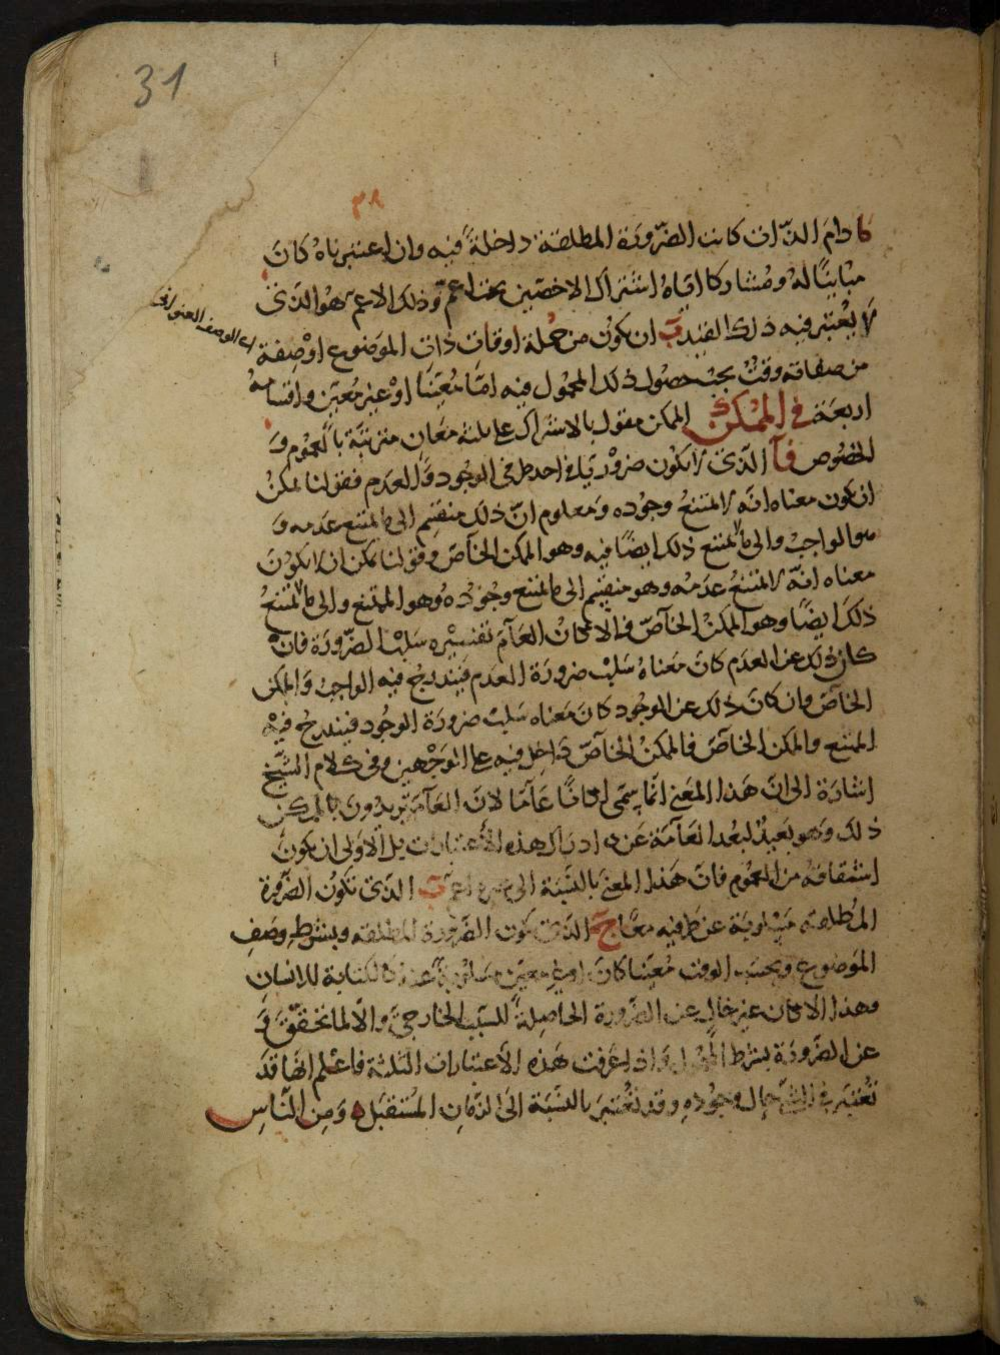 31
٣٨
مادام الذات كانت الضّرورة المطلقة داخلةً فيه وان اعتبرناه كانَ
مبايناً له ومشاركا ايّاه اشتراك الاخصّين تحت اعمّ وذلك الاعم هو الذى
لا يُعتبر فيه ذلك القيد ب ان يكون من جملة اوقات ذات الموضوع او صفة
اى الوصف العنوانى
من صفاته وقتٌ يجب حصول ذلك المحمول فيه امّا مُعيّنا او غير معيّن واقسامه
اربعة فى الممكن الممكن مقول بالاشتراك على ثلثة معانٍ مترتّبة بالعموم وَ
الخصوص فآ الذّى لا يكون ضروريّا فى احد طرفى الوجود وَالعدم فقولنا يمكنُ
ان يكون معناه انّه لا يمتنعُ وجوده وَمعلوم انّ ذلك منقسِم الى ما يمتنع عدمه وَ
هو الواجبُ والى ما لا يمتنع ذلك ايضًا فيه وهو الممكن الخاصّ وقولنا يمكن ان لا يكونَ
معناه انّه لا يمتنعُ عدَمُه وهو منقسِم الى ما يمتنع وجُودُه وهو الممتنع والى ما لا يمتنعُ
ذلك ايضًا وهو الممكنُ الخاصّ فالامكانُ العَامّ تفسيرُه سَلبُ الضّرورَة فانْ
كان ذلك عن العدَم كانَ مَعناهُ سَلبَ ضرورَة العدم فيَندرجُ فيه الواجبُ وَالممكن
الخاصّ وان كانَ ذلك عن الوجود كانَ مَعناه سَلبَ ضرورَة الوجود فيندرجُ فيْه
الممتنع والممكن الخاصّ فالممكنُ الخاصّ دَاخِل فيه على الوَجْهين وفى كلام الشّيخ
اشارَة الى انّ هَذا المعَنى انّما يسمّى امكانًا عَامّا لانّ العَامّة يريدُونَ بالممكن
ذلكَ وَهو بَعيدٌ لبُعد العَامّة عَن ادراك هذه الاعتبارات بل الاَولى ان يكونَ
اشتقاقهُ من العموم فانّ هَذا المعنى بالنّسبَة الى غيره اعمّ ب الذّى تكونُ الضّرورة
المُطلقة مَسْلوبَة عن طرفيه معًا ج الذّى يكون الضّرورة المطلقه وبشرط وصَفِ
الموَضوع وبحسَب الوقت مُعيّنا كانَ او غير معيّن مسلوبة عنه كالكتابة للانسان
وهذا الامكان غير خالٍ عن الضرورة الحاصِلةً للسّبَب الخارجىّ وَالّا لما تحقّقَ وَ
عن الضّرورَة بشرط المحمول وَاذا عَرفت هَذه الاَعتبارات الثلثة فاعْلم انّها قدَ
تُعْتبَر فى الشئ حال وجُودِه وقد تُعْتبرَ بالنّسبَة الىَ الزّمَان المُستقبَل وَمِن النّاسِ